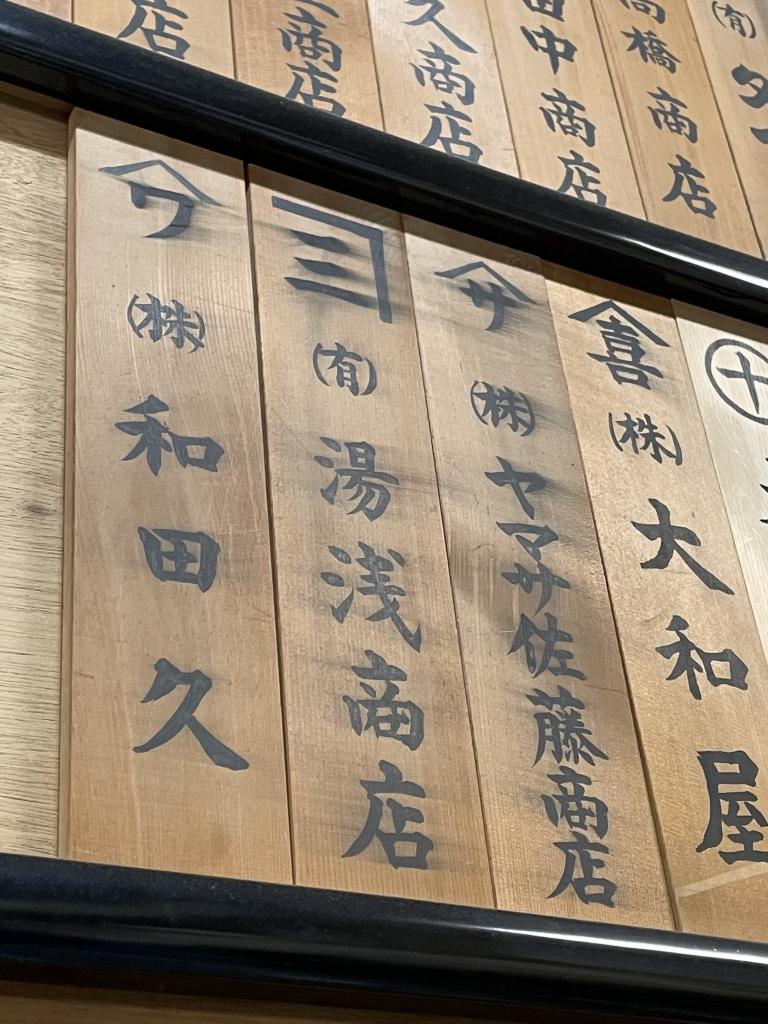 (有)
高橋商店
田中商店
久商店
商店
店
十
喜 (株) 大和屋
サ (株) ヤマサ佐藤商店
三 (有) 湯浅商店
ワ (株) 和田久